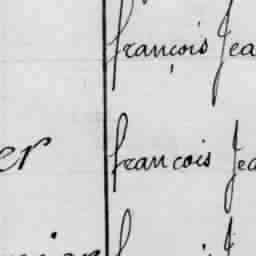 françois Jea
er françois Jea